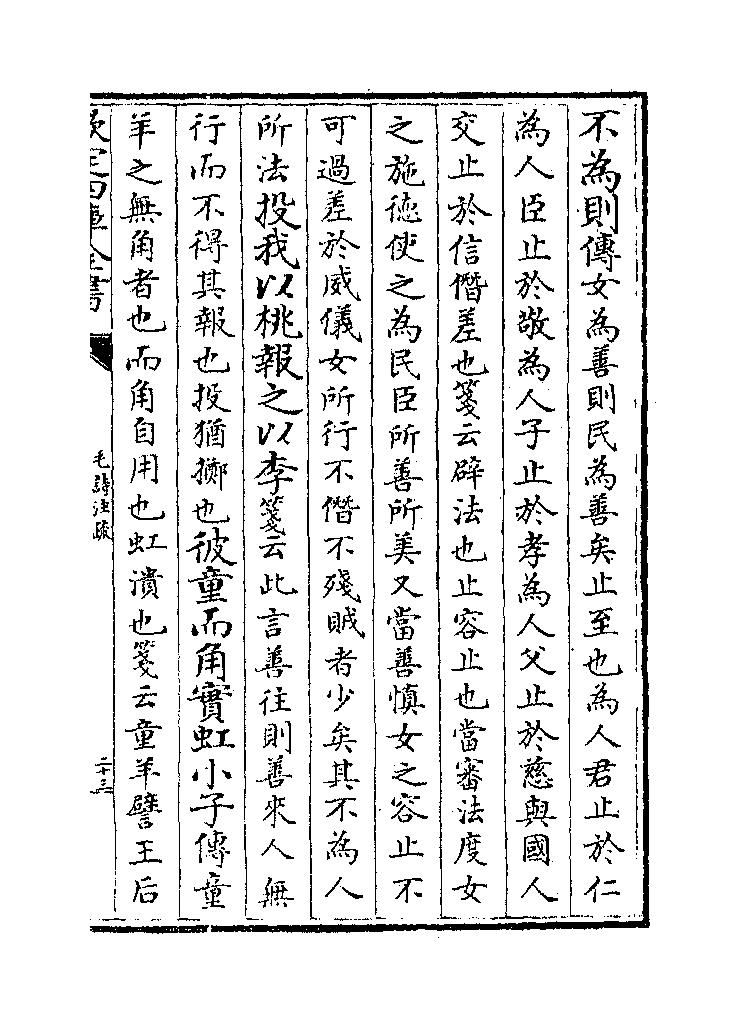 不為則傳女為善則民為善矣止至也為人君止於仁
為人臣止於敬為人子止於孝為人父止於慈與國人
交止於信僭差也箋云辟法也止容止也當審法度女
之施德使之為民臣所善所美又當善慎女之容止不
可過差於威儀女所行不僭不殘賊者少矣其不為人
所法投我以桃報之以李箋云此言善往則善來人無
行而不得其報也投猶擲也彼童而角實虹小子傳童
羊之無角者也而角自用也虹潰也箋云童羊譬王后
欽定四庫全書
毛詩注疏
二十三